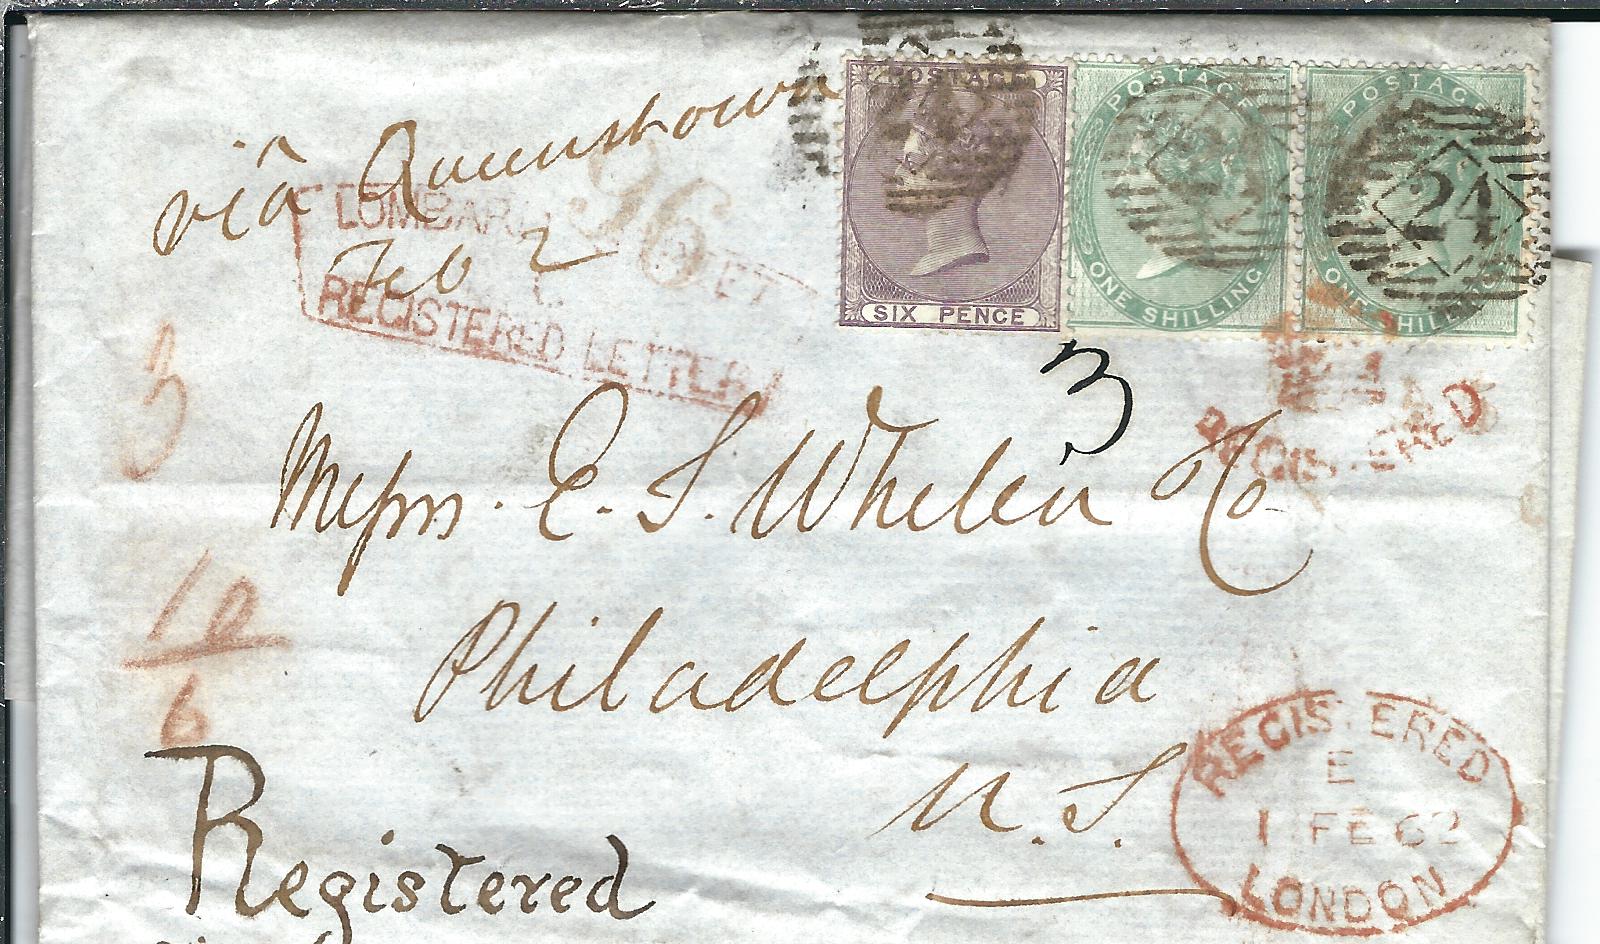 via Queenstown
Feb 2
96
LOMBARD STREET
REGISTERED LETTER
POSTAGE
SIX PENCE
POSTAGE
ONE SHILLING
POSTAGE
ONE SHILLING
24
3
3
REGISTERED
Messrs. E. S. Whelen & Co.
Philadelphia
U. S.
10
6
Registered
REGISTERED
E
1 FE 62
LONDON